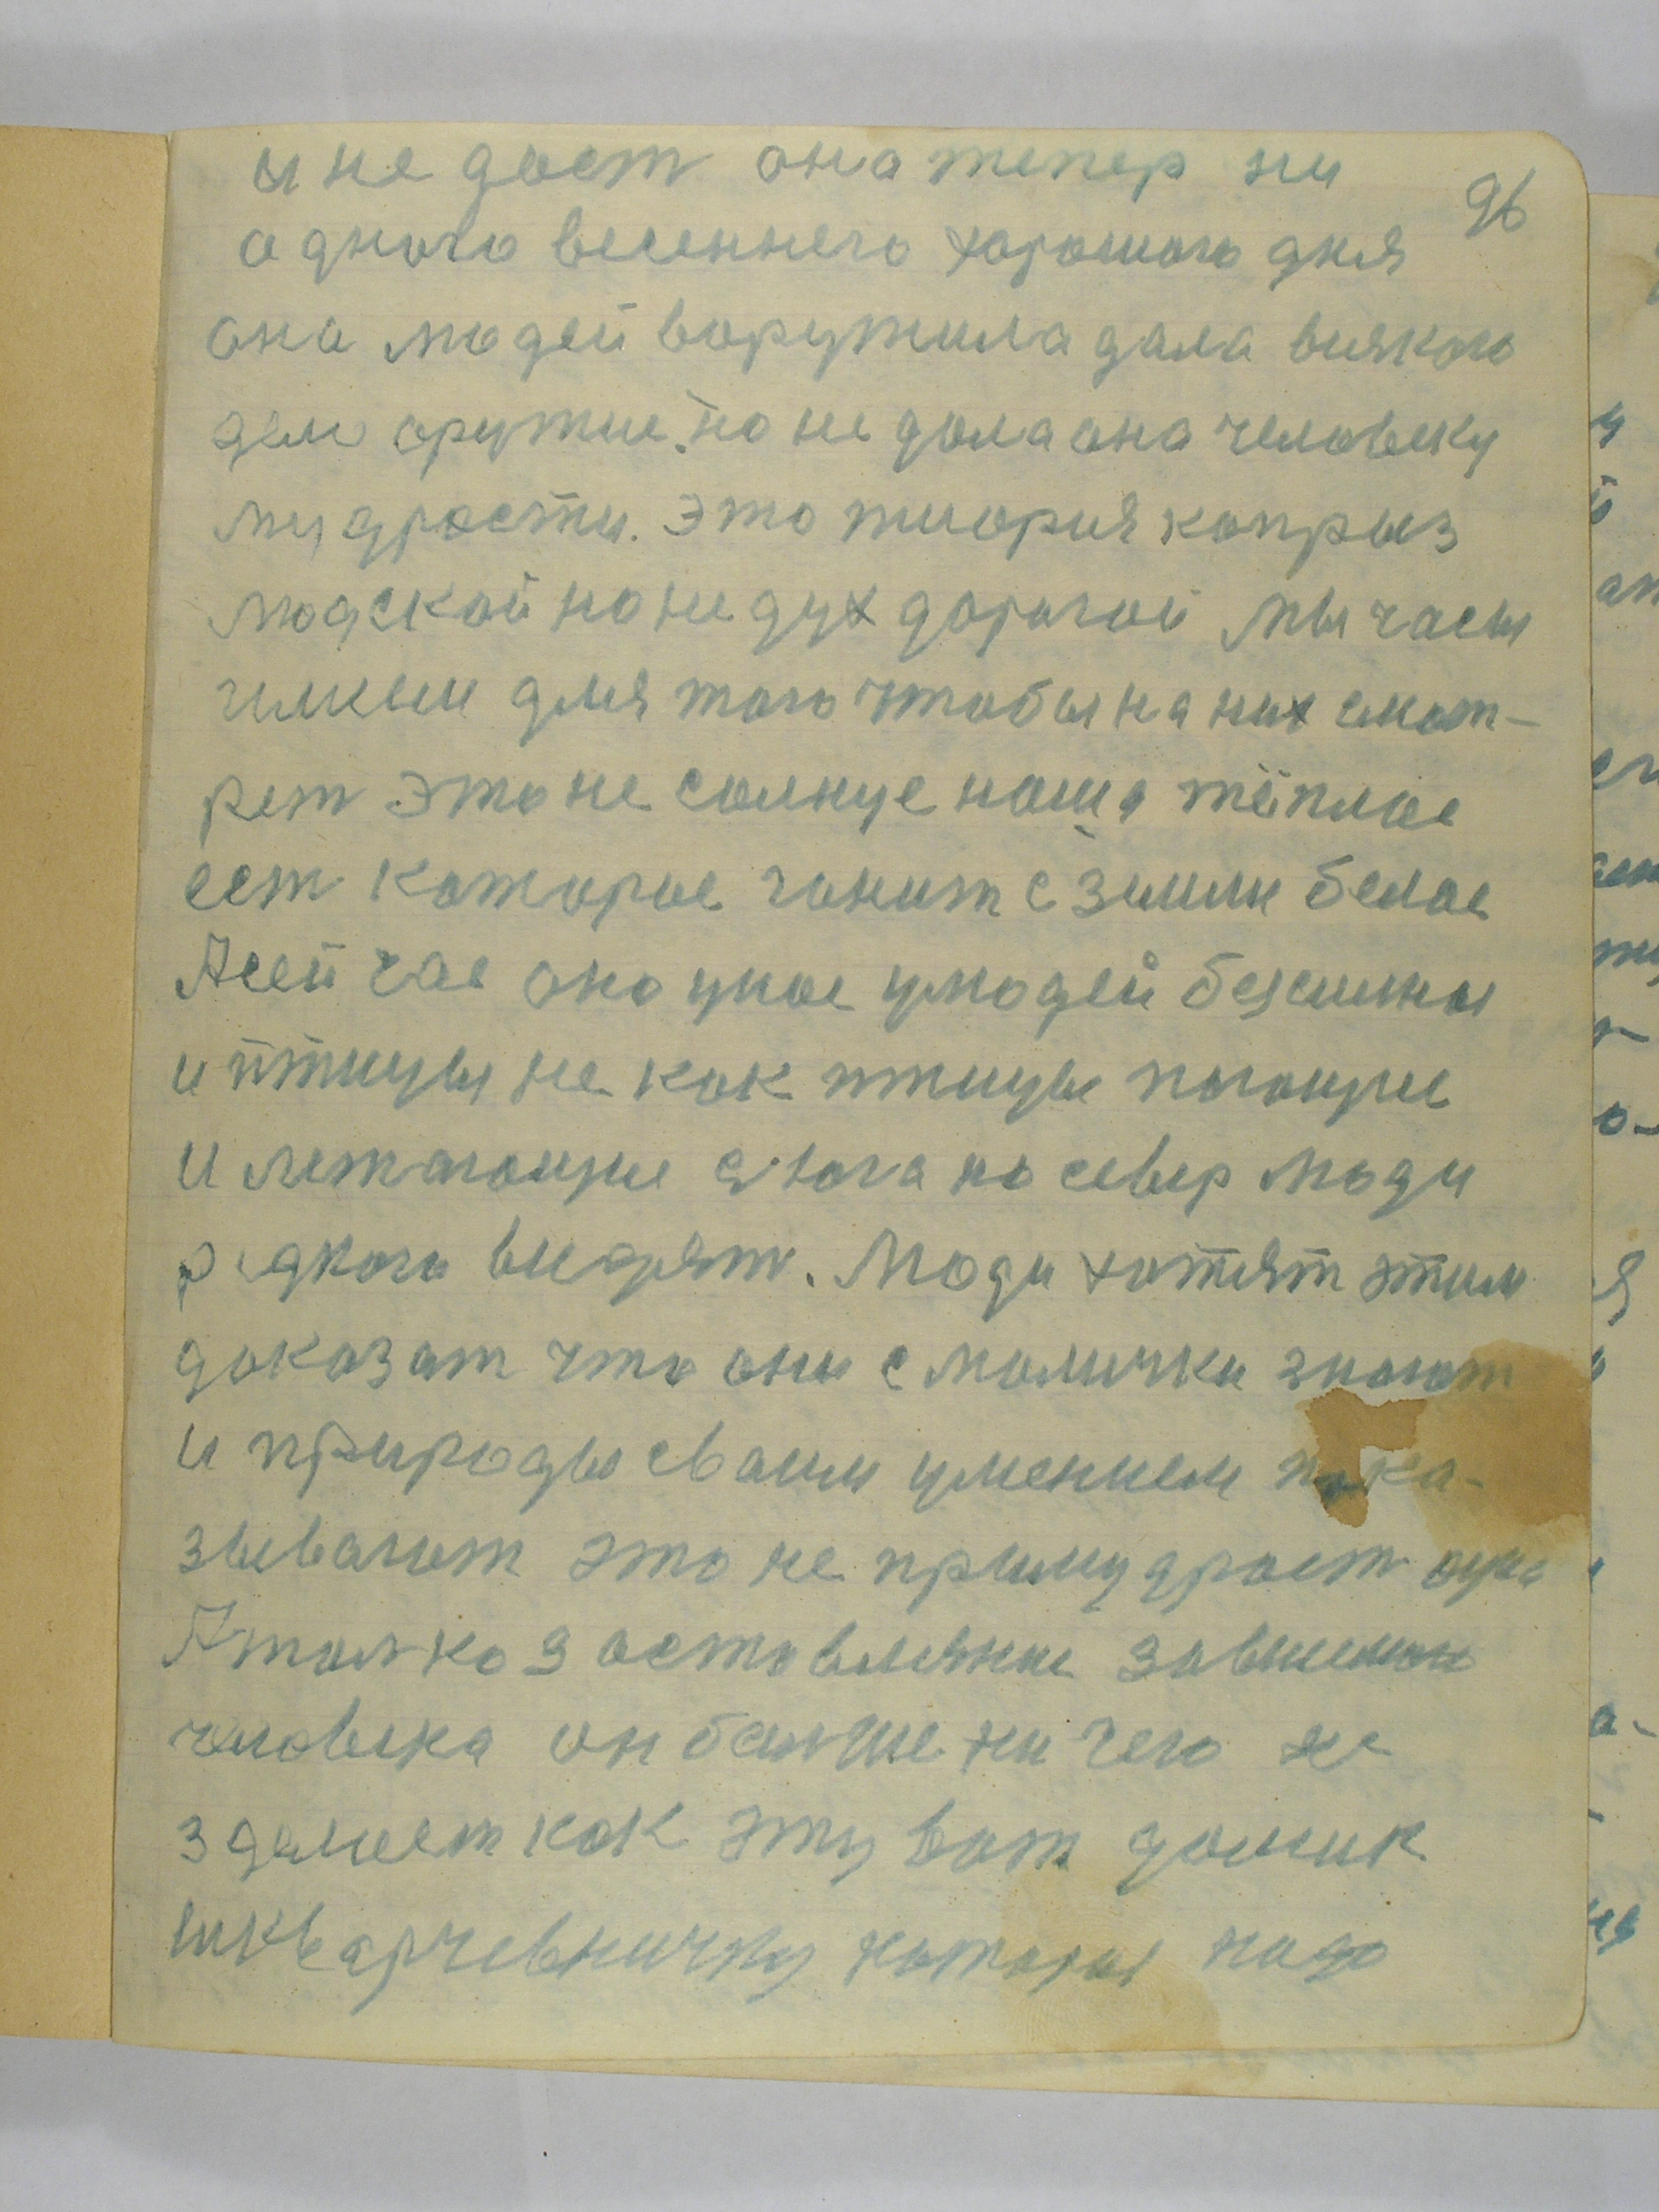 и не даст она тепер ни
96
одного весеннего хорошого дня
она людей воружила дала всякого
дела оружие. но не дала она человеку
мудрости. Это тиория копрыз
людской но не дух дорогой мы часы
для того чтобы на них смот-
рет это не солнце наша тёплое
ест которое гонит с земли белое
А сейчас оно умое улюдей безсилны
и птицы не как птицы поющие
и летающие с юга но север люди
редкого видрят. Люди хотят этим
доказат что они с маличка знают
и природы своим умением пока-
зывают это не примудраст
А толко зостовляние
человека он болше ни чего не
зделает как эту вот домик
которая надо